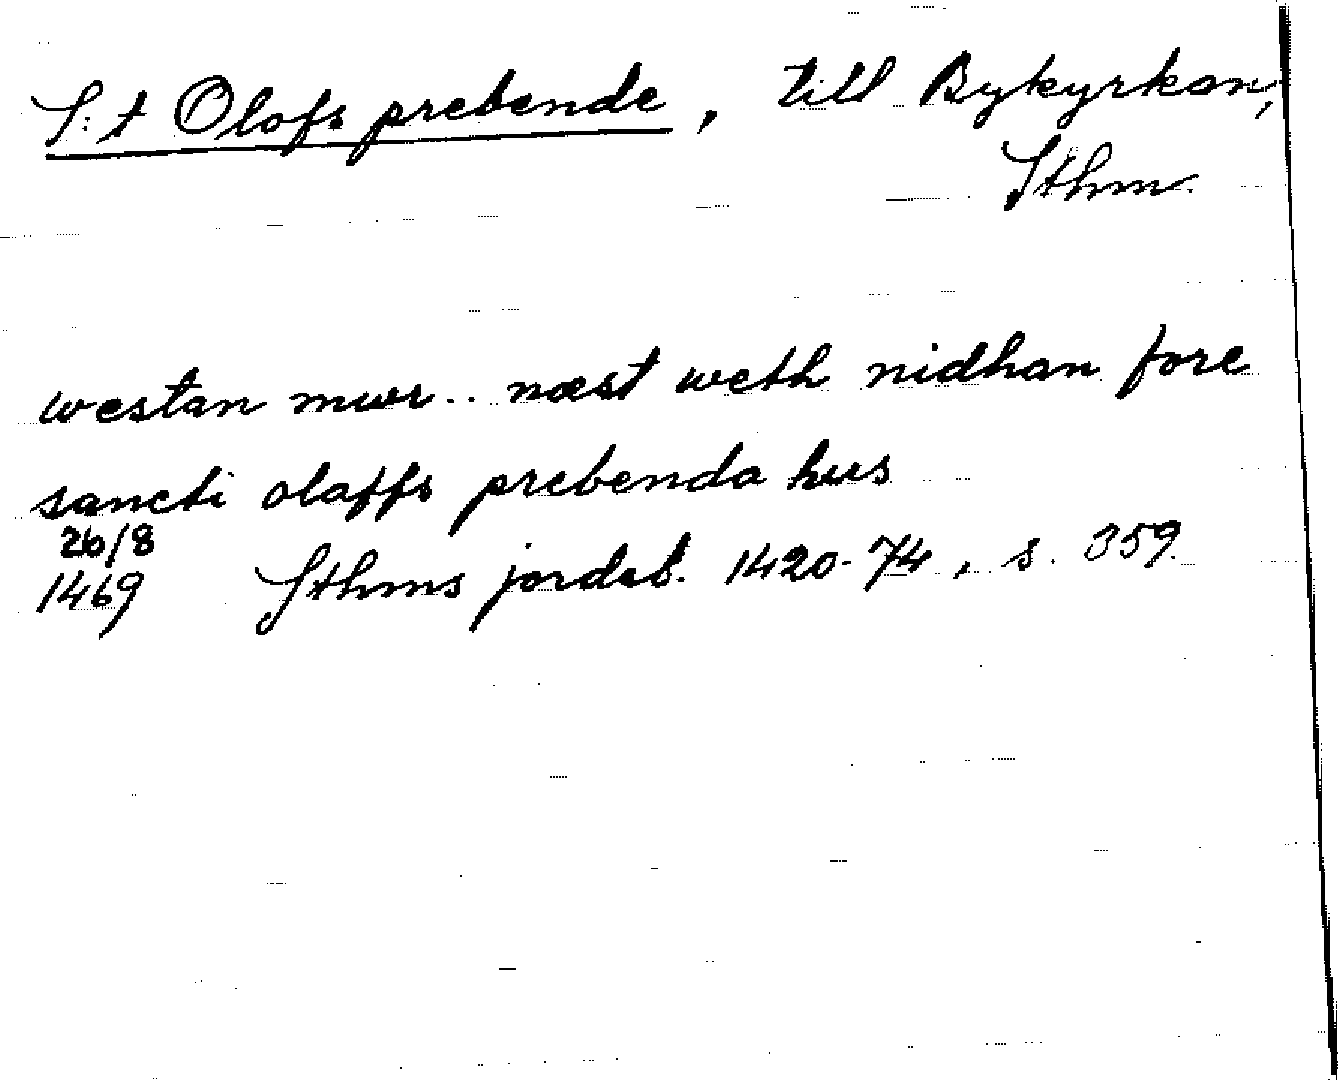 S:t Olofs prebende, till Bykyrkan,
Sthm.
westan mwr.. næst weth nidhan fore
sancti olaffs prebenda hus
26/8
1469 Sthms jordab. 1420-74, s. 359.